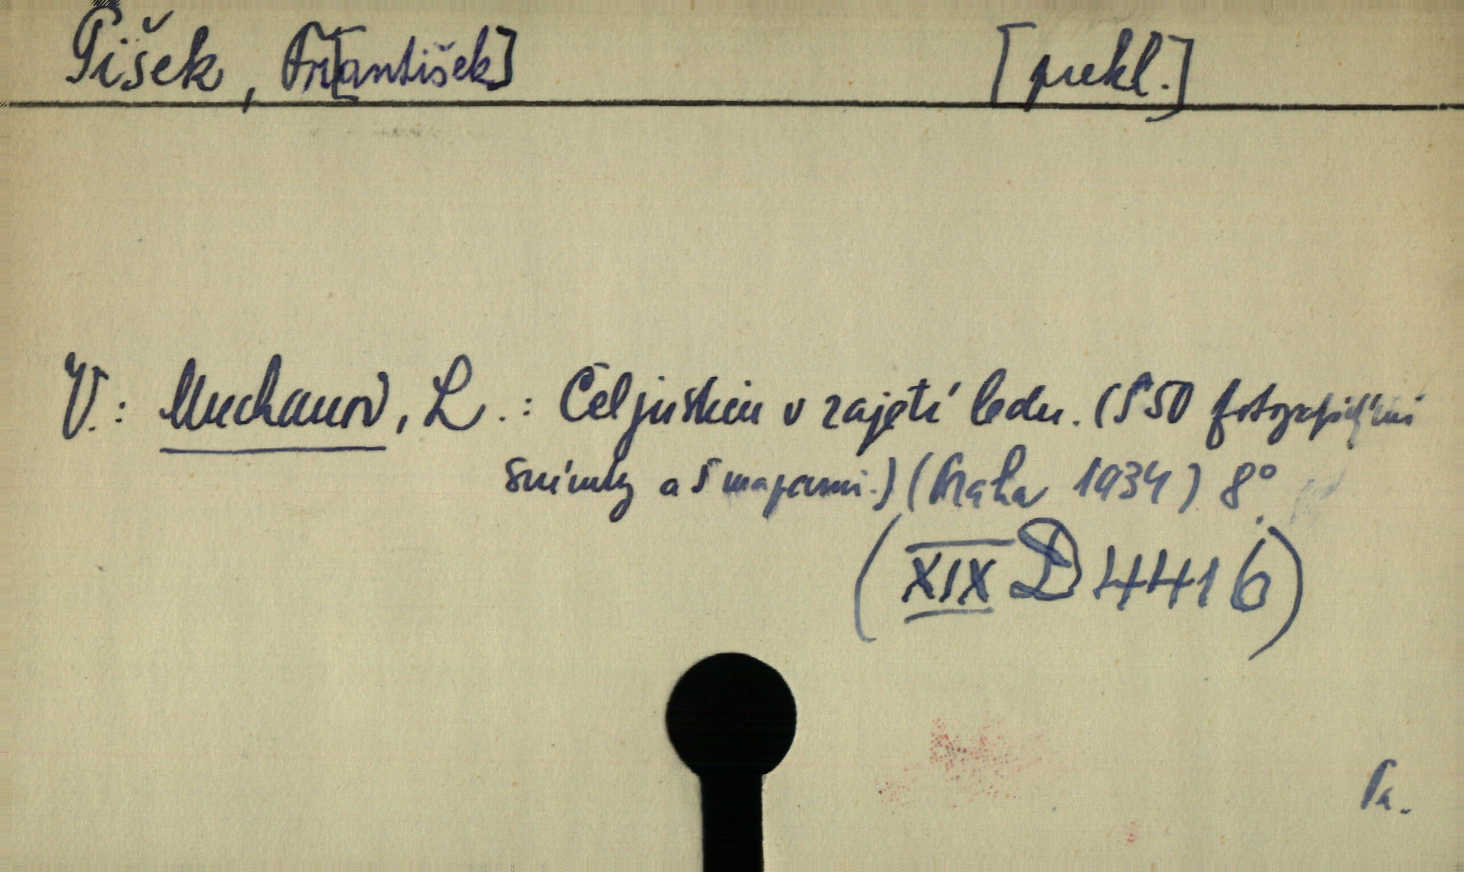 Píšek, Fr[antišek] [překl.]
V.: Muchanov, L.: Čeljuskin v zajetí ledu. (S 50 fotografickými
snímky a 5 mapami.) (Praha 1934) 8°.
(XIX D 4416)
Pa.